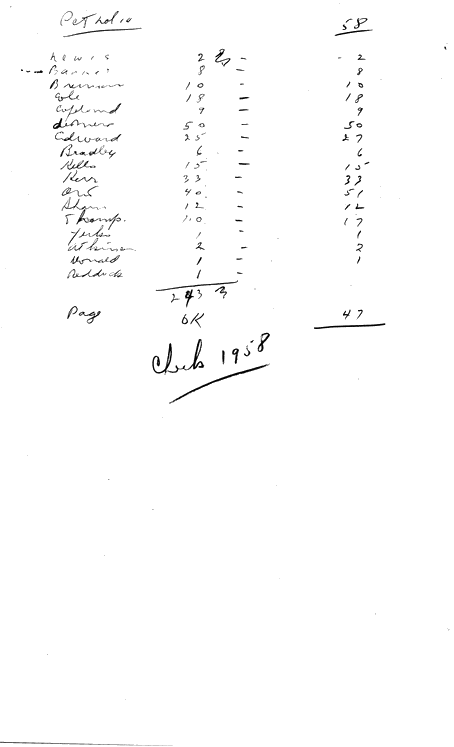 58
Lewis 2 - - 2
Barnes 8 - 8
Brennan 10 - 10
Cole 18 - 18
Copeland 9 - 9
50 - 50
Edward 25 - 27
Bradley 6 - 6
Kells 15 - 15
Kerr 33 - 33
Orr 40 - 51
12 - 12
Thomp. 10 - 17
Yerks 1 - 1
Atkinson 2 - 2
Donald 1 - 1
Reddick 1 -
243
Page OK 47
1958